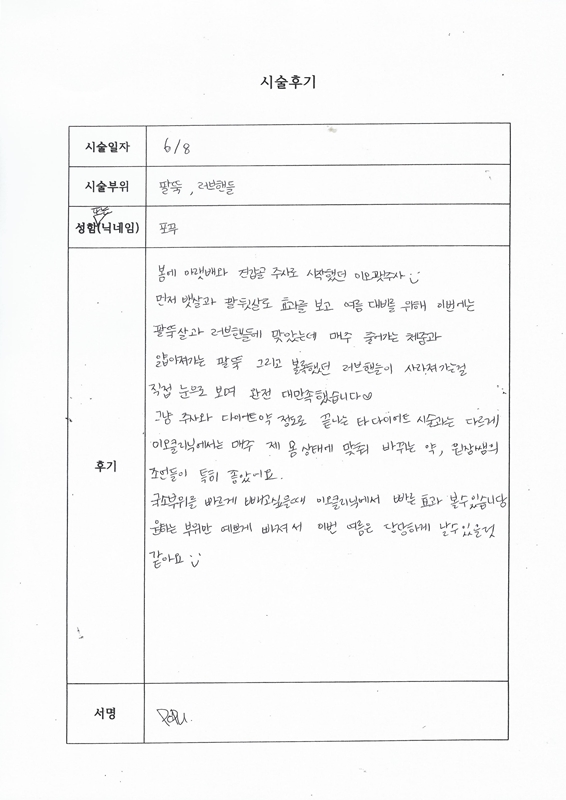 시술후기
시술일자 6/8
시술부위 팔뚝, 러브핸들
성함(닉네임) 포포
후기
봄에 아랫배와 견갑골 주사로 시작했던 이오팻주사
먼저 뱃살과 팔뒷살도 효과를 보고 여름 대비를 위해 이번에는
팔뚝살과 러브핸들에 맞았는데 매주 줄어가는 체중과
얇아져가는 팔뚝 그리고 볼록했던 러브핸들이 사라져가는걸
직접 눈으로 보며 완전 대만족했습니다♡
그냥 주사와 다이어트약 정도로 끝나는 타 다이어트 시술과는 다르게
이오클리닉에서는 매주 제 몸상태에 맞춰 바꾸는 약, 원장쌤의
조언들이 특히 좋았어요.
국소부위를 빠르게 빼고싶을때 이오클리닉에서 빠른 효과 볼수있습니당
원하는 부위만 예쁘게 빠져서 이번 여름은 당당하게 날수있을것
같아요
서명 POPU.